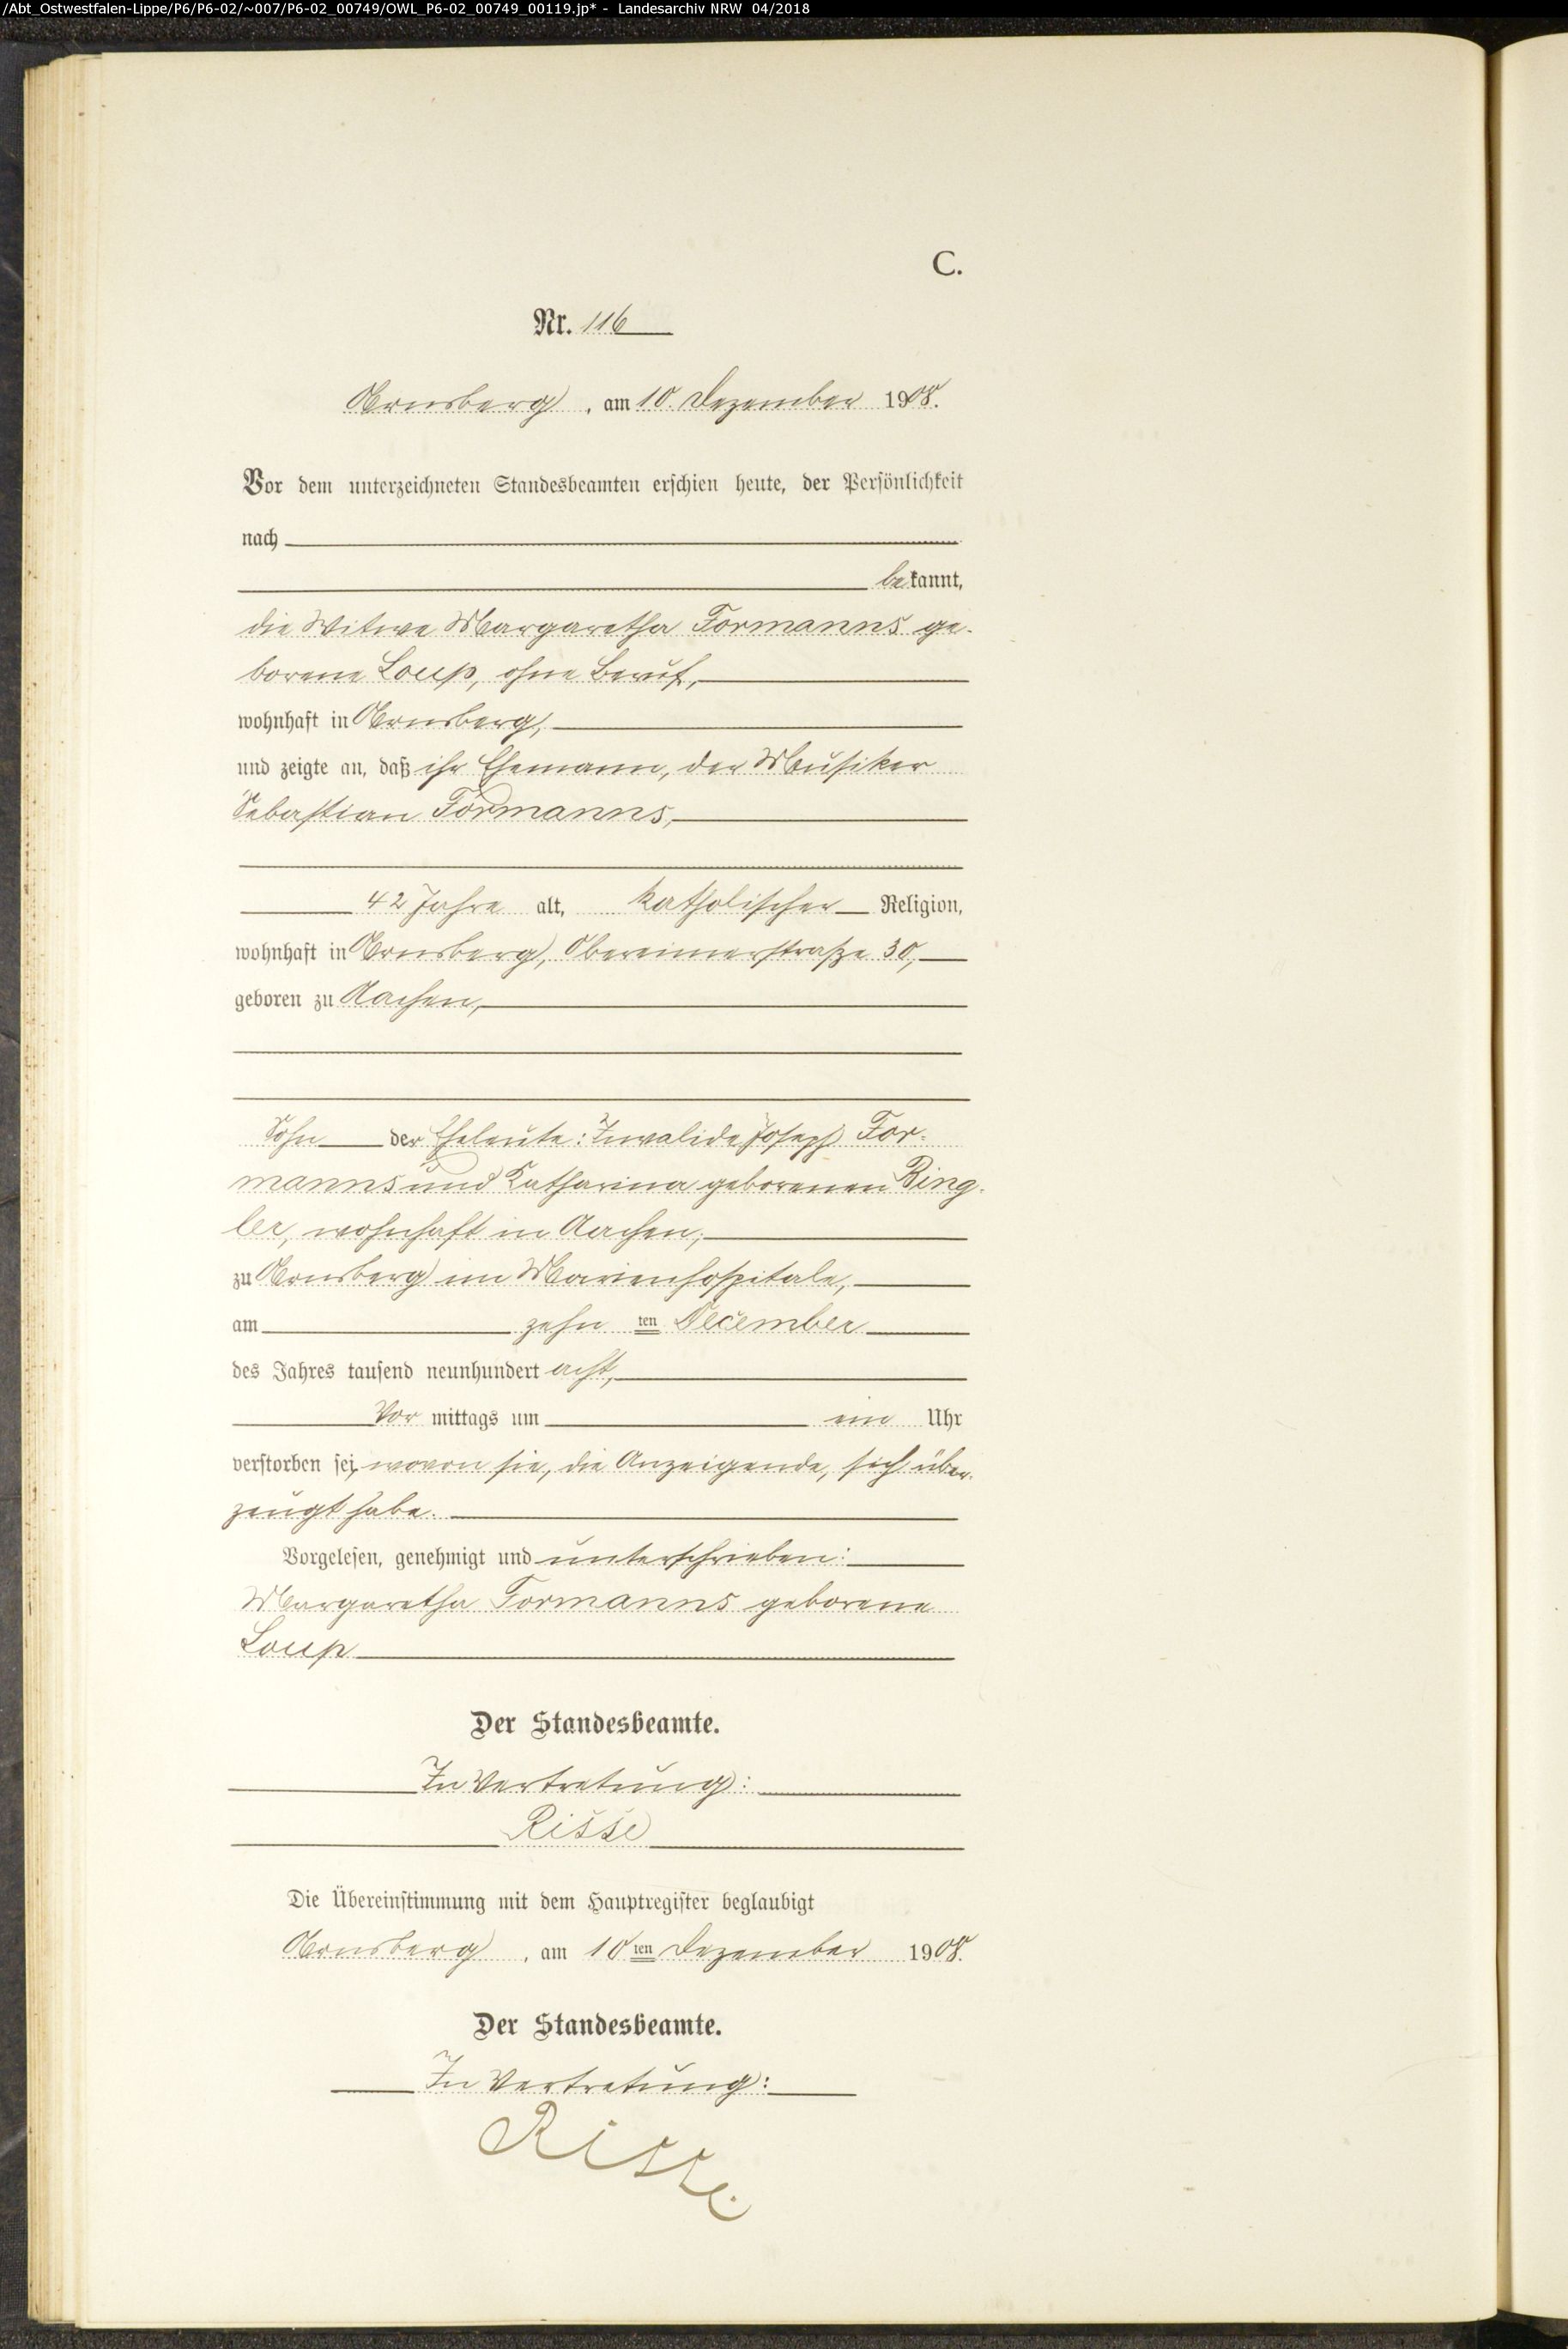 /Abt_Ostwestfalen-Lippe/P6/P6-02/~007/P6-02_00749/OWL_P6-02_00749_00119.jp* - Landesarchiv NRW 04/2018
C.
Nr. 116
Arnsberg, am 10. Dezember 1908.
Vor dem unterzeichneten Standesbeamten erschien heute, der Persönlichkeit
nach
bekannt,
die Witwe Margaretha Formanns ge-
borene Loup, ohne Beruf,
wohnhaft in Arnsberg,
und zeigte an, daß ihr Ehemann, der Musiker
Sebastian Formanns,
42 Jahre alt, katholischer Religion,
wohnhaft in Arnsberg, Obereimerstraße 30,
geboren zu Aachen,
Sohn der Eheleute: Invalide Joseph For-
manns und Katharina geborenen Ring-
ler, wohnhaft in Aachen,
zu Arnsberg im Marienhospitale,
am zehn ten December
des Jahres tausend neunhundert acht,
Vor mittags um ein Uhr
verstorben sei, wovon sie, die Anzeigende, sich über-
zeugt habe.
Vorgelesen, genehmigt und unterschrieben:
Margaretha Formanns geborene
Loup
Der Standesbeamte.
In Vertretung:
Risse
Die Übereinstimmung mit dem Hauptregister beglaubigt
Arnsberg, am 10ten Dezember 1908.
Der Standesbeamte.
In Vertretung:
Risse